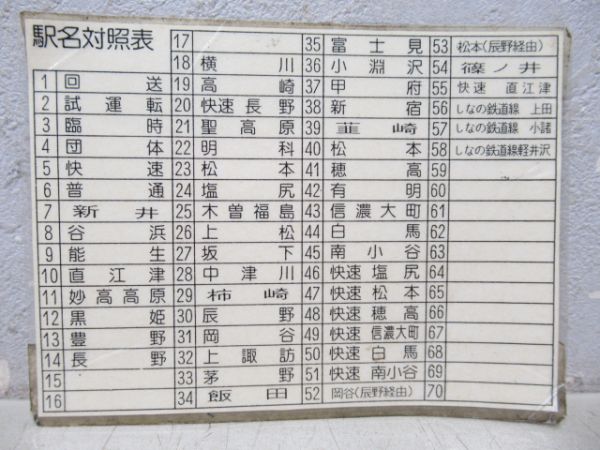 駅名対照表
1 回送
2 試運転
3 臨時
4 団体
5 快速
6 普通
7 新井
8 谷浜
9 能生
10 直江津
11 妙高高原
12 黒姫
13 豊野
14 長野
15
16
17
18 横川
19 高崎
20 快速長野
21 聖高原
22 明科
23 松本
24 塩尻
25 木曽福島
26 上松
27 坂下
28 中津川
29 柿崎
30 辰野
31 岡谷
32 上諏訪
33 茅野
34 飯田
35 富士見
36 小淵沢
37 甲府
38 新宿
39 韮崎
40 松本
41 穂高
42 有明
43 信濃大町
44 白馬
45 南小谷
46 快速 塩尻
47 快速 松本
48 快速 穂高
49 快速 信濃大町
50 快速 白馬
51 快速 南小谷
52 岡谷(辰野経由)
53 松本(辰野経由)
54 篠ノ井
55 快速 直江津
56 しなの鉄道線 上田
57 しなの鉄道線 小諸
58 しなの鉄道線軽井沢
59
60
61
62
63
64
65
66
67
68
69
70